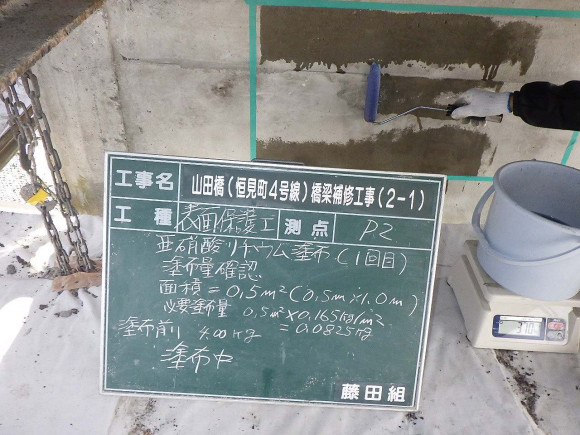 工事名 山田橋(恒見町4号線)橋梁補修工事(2-1)
工種 表面保護工 測点 P2
亜硝酸リチウム塗布(1回目)
塗布量確認
面積=0.5m²(0.5m×1.0m)
必要塗布量 0.5m²×0.165kg/m²
=0.0825kg
塗布前 4.00kg
塗布中
藤田組